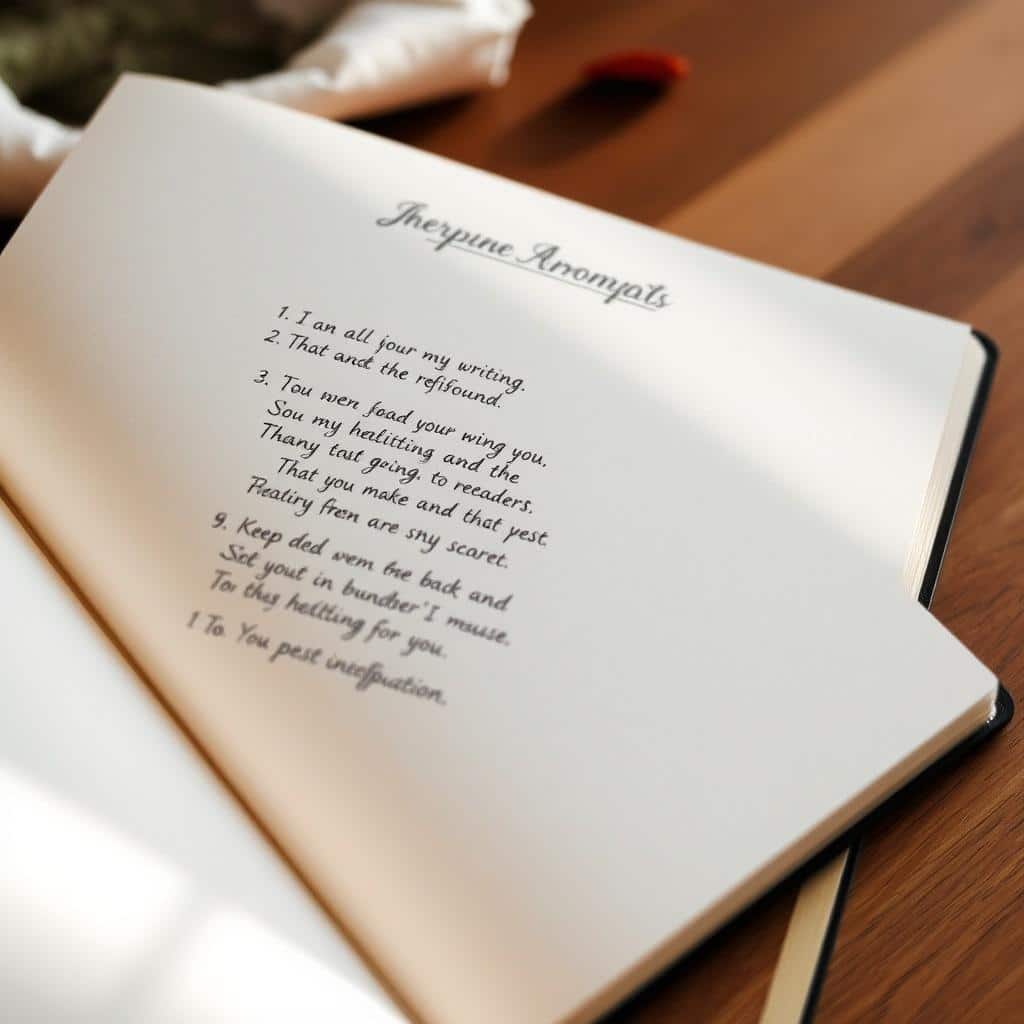 Jherpune Arromyats
1. I an all jour my writing.
2. That anct the refifound.
3. Tou wern foad your wing you.
Sou my healitting and the
Thany tast going. to recaders.
That you make and that yest.
Reatiry fren are sny scaret.
9. Keep ded wem the back and
Sct yout in bundser' I mause.
To thıs heltting for you.
1 To. You pest